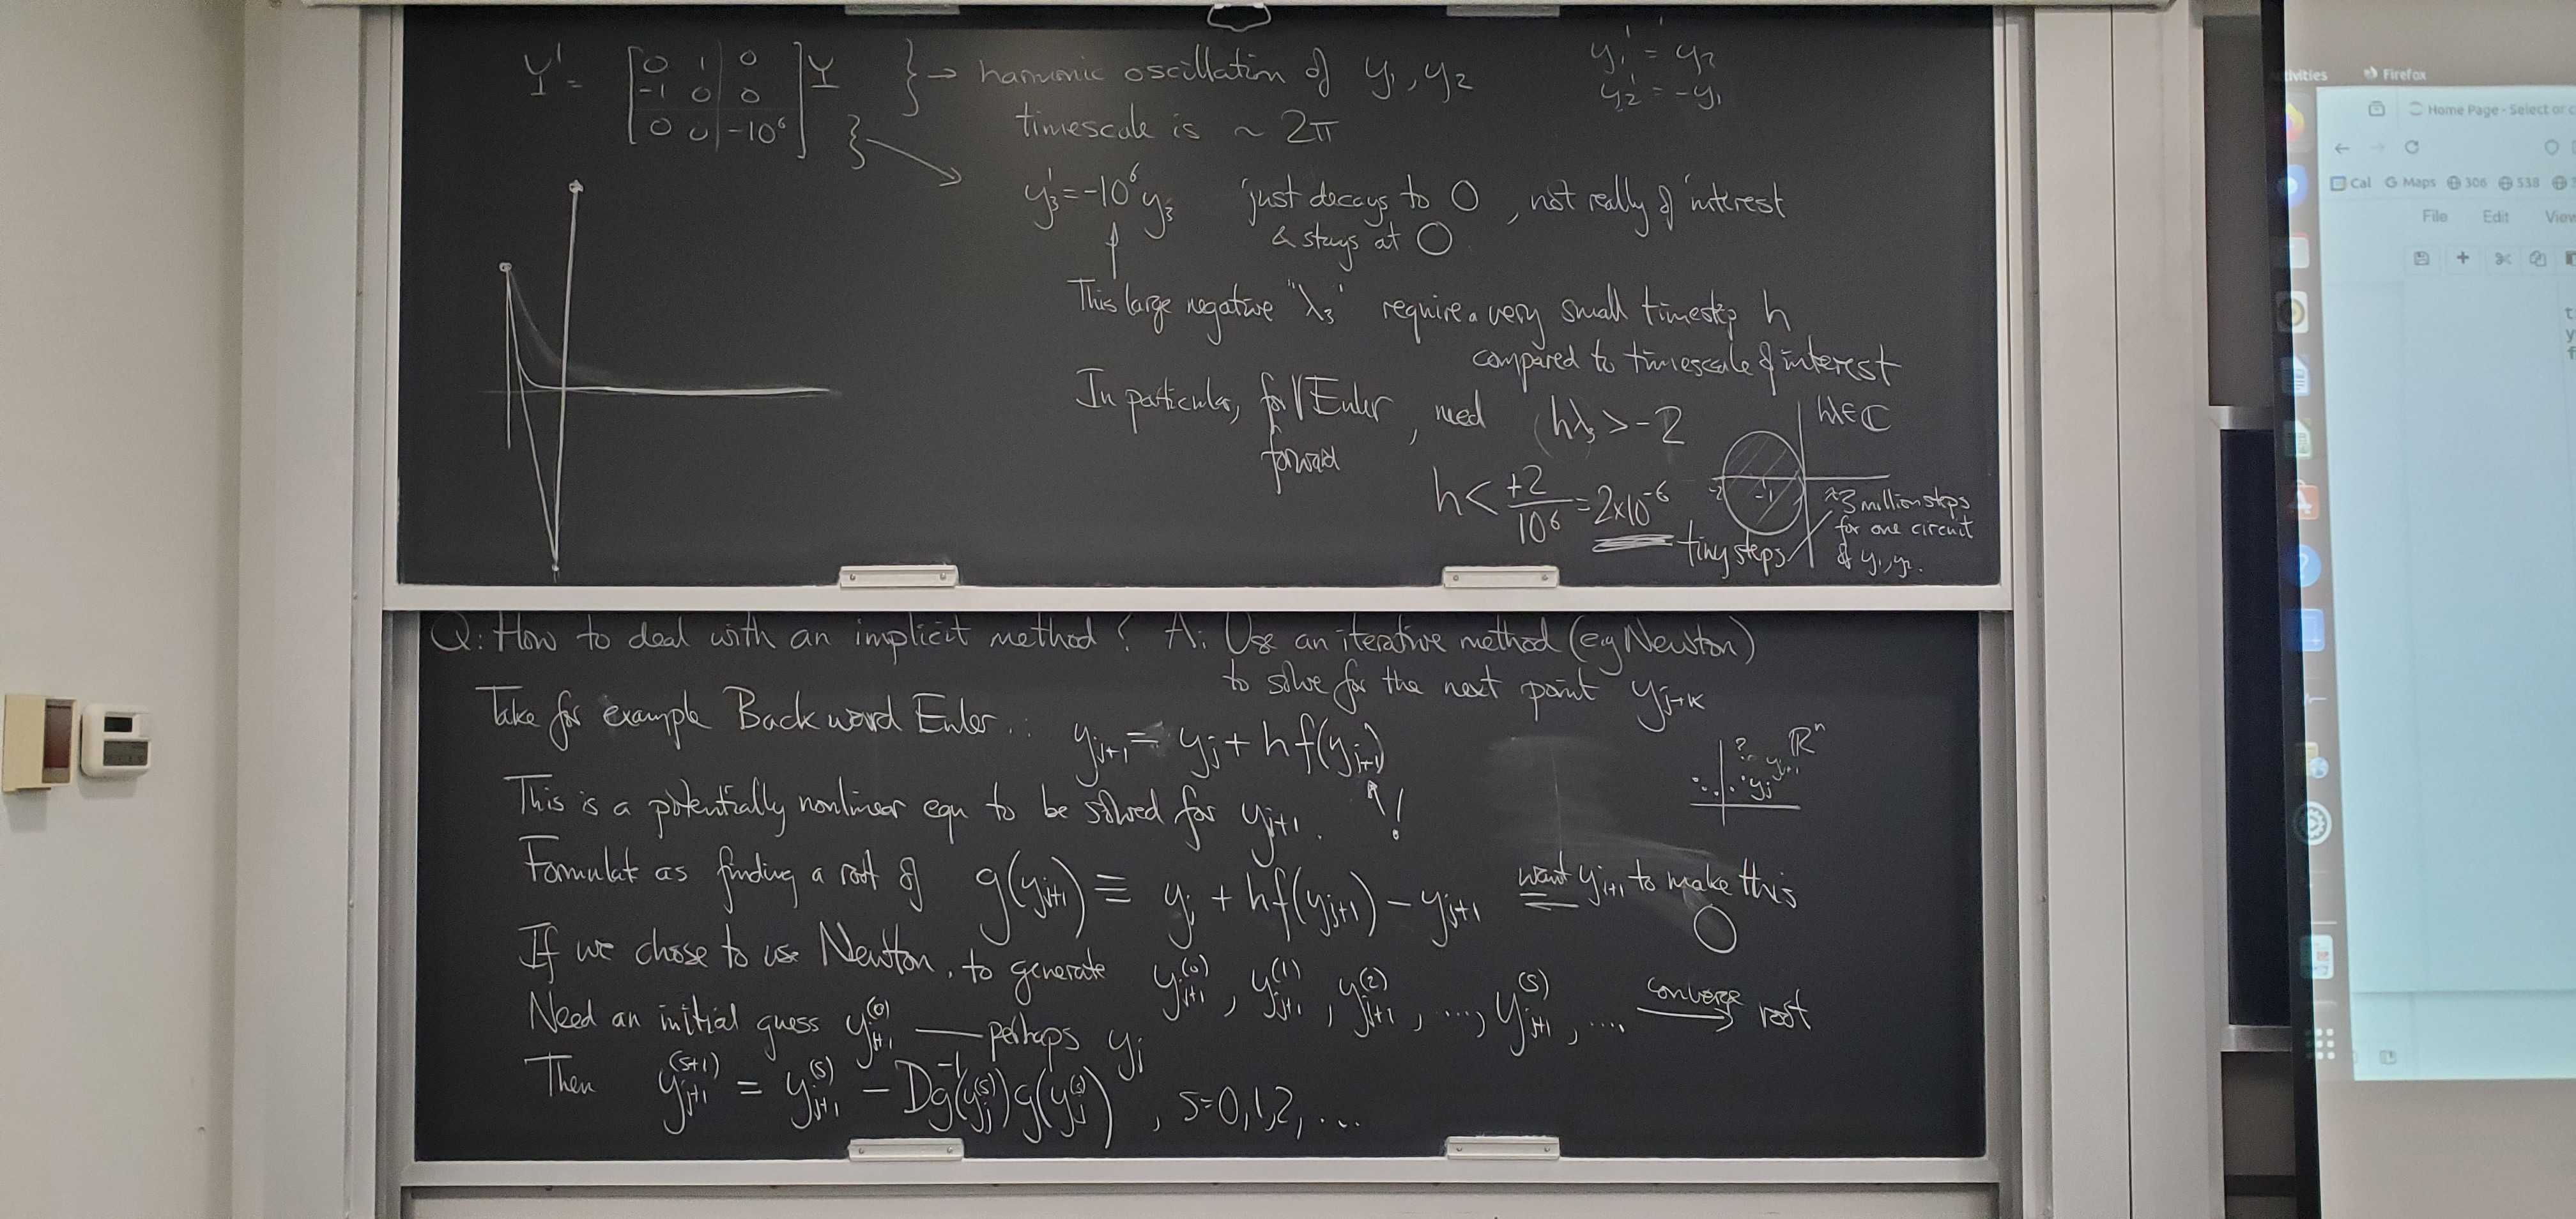 Y' = [0 1 0; -1 0 0; 0 0 -10⁶] Y } → harmonic oscillation of y₁, y₂
timescale is ~ 2π
y₁' = y₂
y₂' = -y₁
} y₃' = -10⁶ y₃ just decays to 0, not really of interest
& stays at 0
This large negative "λ₃" require a very small timestep h
compared to timescale of interest
In particular, for Euler, need (hλ₃ > -2
forward
hλ∈ℂ
-2 -1
h < +2/10⁶ = 2×10⁻⁶
tiny steps
≈3 million steps
for one circuit
of y₁, y₂.
Q: How to deal with an implicit method? A: Use an iterative method (eg Newton)
to solve for the next point y_{j+k}
Take for example Backward Euler: y_{j+1} = y_j + h f(y_{j+1})
!
? y_{j+1} ℝⁿ
y_j
This is a potentially nonlinear eqn to be solved for y_{j+1}.
Formulate as finding a root of g(y_{j+1}) ≡ y_j + hf(y_{j+1}) - y_{j+1} want y_{j+1} to make this
0
If we chose to use Newton, to generate y_{j+1}^{(0)}, y_{j+1}^{(1)}, y_{j+1}^{(2)}, ..., y_{j+1}^{(s)}, .... converge → root
Need an initial guess y_{j+1}^{(0)} — perhaps y_j
Then y_{j+1}^{(s+1)} = y_{j+1}^{(s)} - Dg⁻¹(y_j^{(s)}) g(y_j^{(s)}), s=0,1,2,...
Firefox
Home Page - Select or c
Cal G Maps 306 538
File Edit View